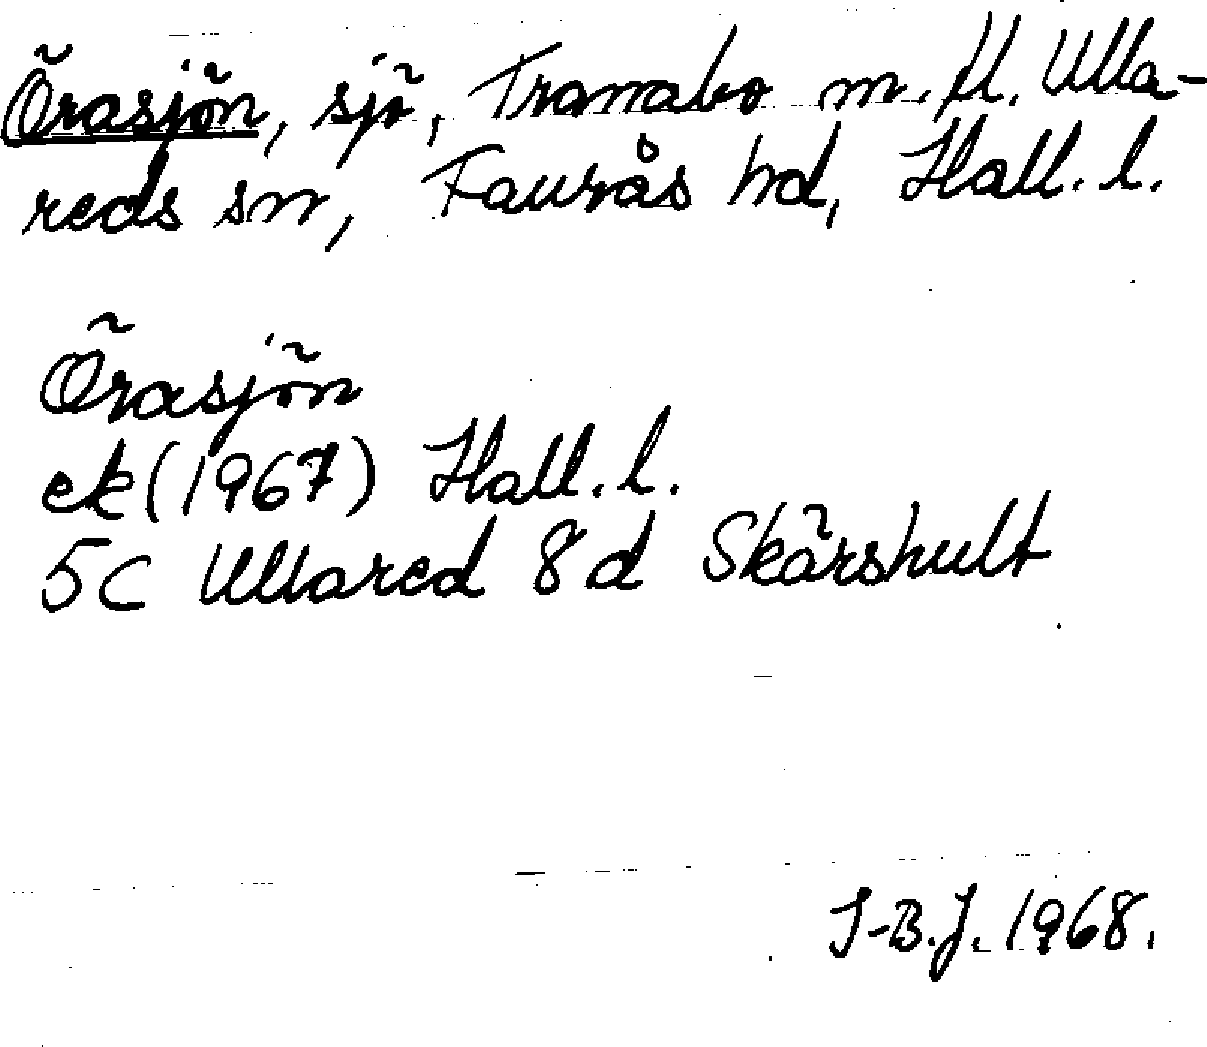 Örasjön, sjö, Tranabo m. fl. Ulla-
reds sn, Faurås hd, Hall. l.
Örasjön
ek (1967) Hall. l.
5C Ullared 8d Skärshult
I-B.J. 1968.